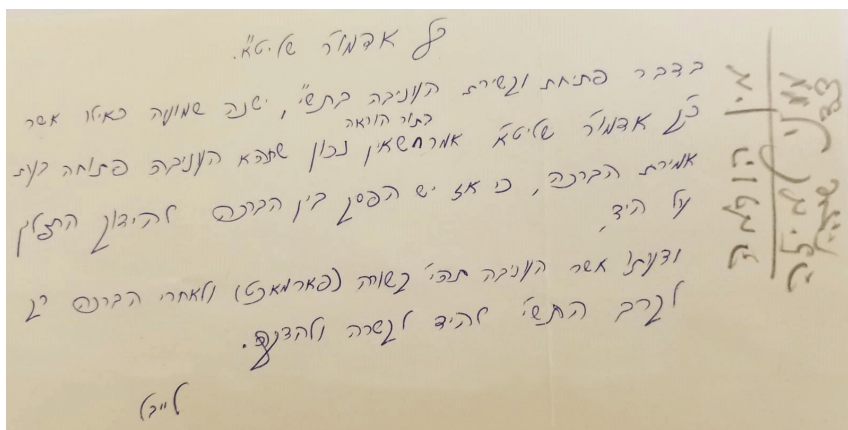 כ"ק אדמו"ר שליט"א.
בדבר פתיחת וקשירת העניבה בתש"י, ישנה שמועה כאילו אשר
כ"ק אדמו"ר שליט"א אמר בתור הוראה שאין נכון שתהא העניבה פתוחה בעת
אמירת הברכה, כי אז יש הפסק בין הברכה להידוק התפלין
על היד,
ודעתי אשר העניבה תהי' קשורה (פארמאכט) ולאחרי הברכה רק
לקרב התש"י להיד לקשרה ולהדקה.
לייבל
אין הופמה